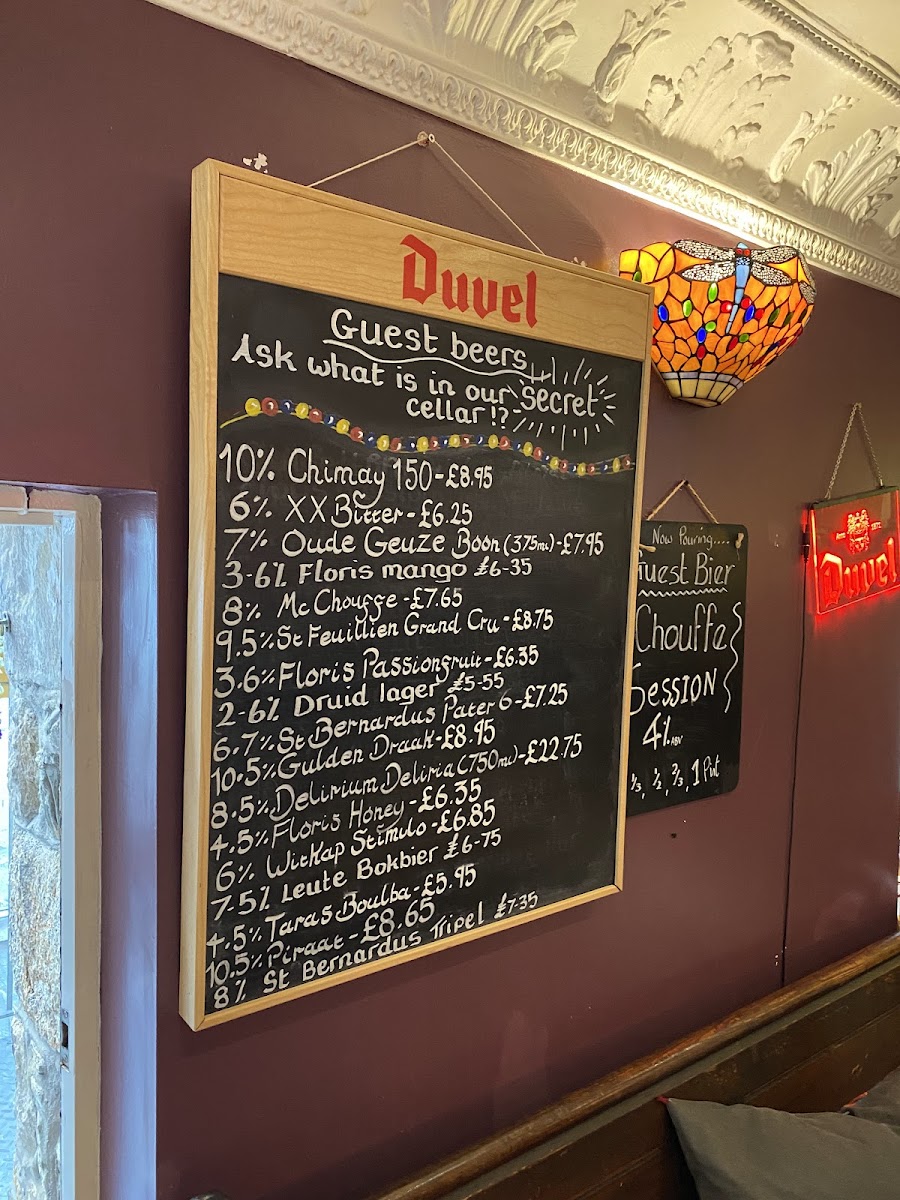 Duvel
Guest beers
Ask what is in our secret
cellar!?
10% Chimay 150 - £8.95
6% XX Bitter - £6.25
7% Oude Geuze Boon (375ml) - £7.95
3-6% Floris mango £6-35
8% Mc Chouffe - £7.65
9.5% St Feuillien Grand Cru - £8.75
3.6% Floris Passionfruit - £6.35
2-6% Druid lager £5-55
6.7% St Bernardus Pater 6 - £7.25
10.5% Gulden Draak - £8.95
8.5% Delirium Deliria (750ml) - £22.75
4.5% Floris Honey - £6.35
6% Witkap Stimulo - £6.85
7-5% Leute Bokbier £6-75
4.5% Taras Boulba - £5.95
10.5% Piraat - £8.65
8% St Bernardus Tripel £7-35
Now Pouring....
Guest Bier
Chouffe
SESSION
4% ABV
⅓, ½, ⅔, 1 Pint
Duvel